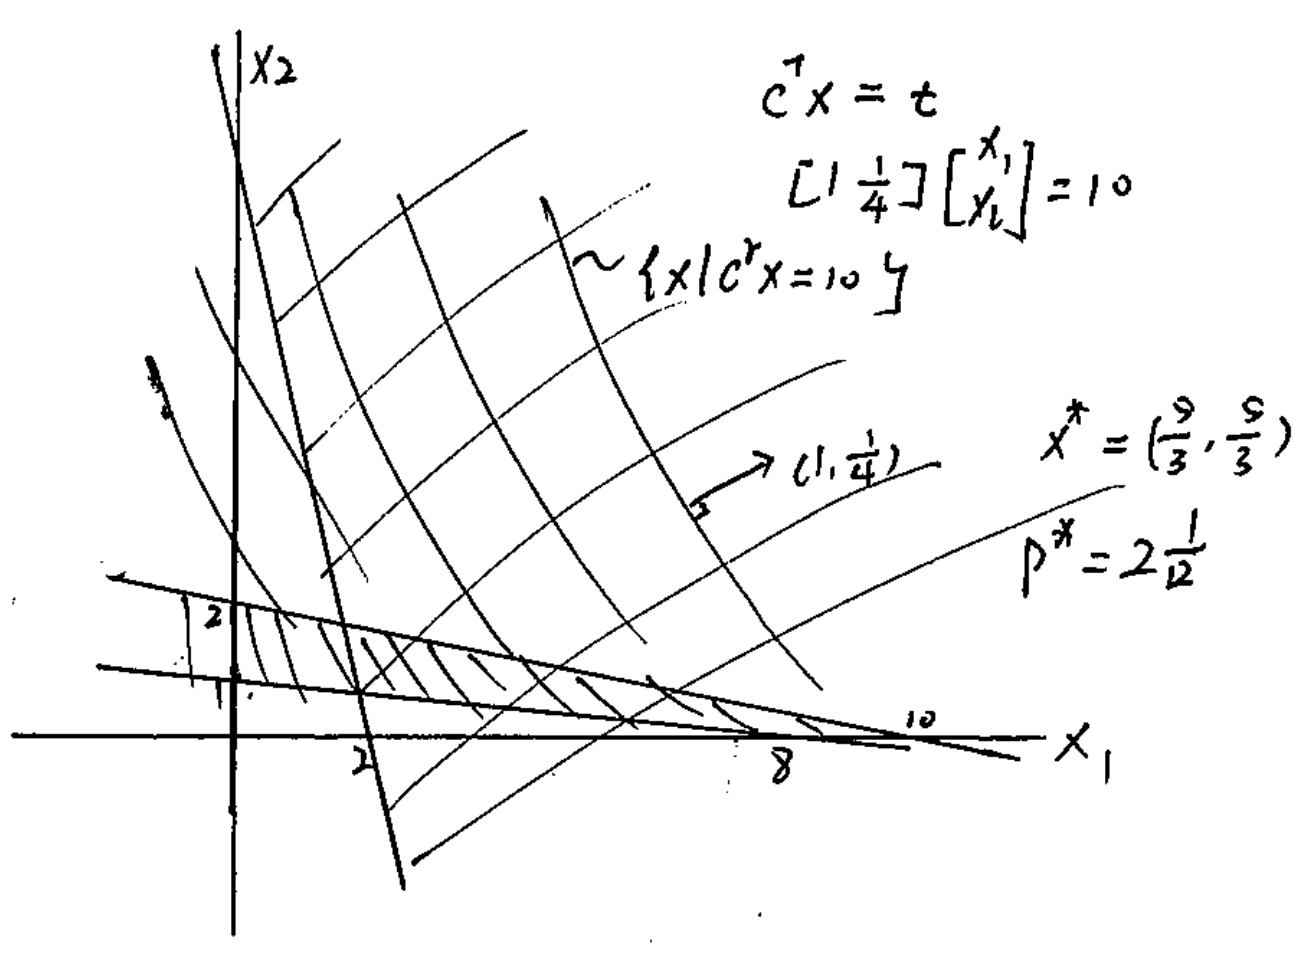 x₂
cᵀx = t
[1 ¼] [x₁ x₂] = 10
{x | cᵀx = 10}
(1, ¼)
x* = (5/3, 5/3)
p* = 2 1/12
2
1
10
2
8
x₁